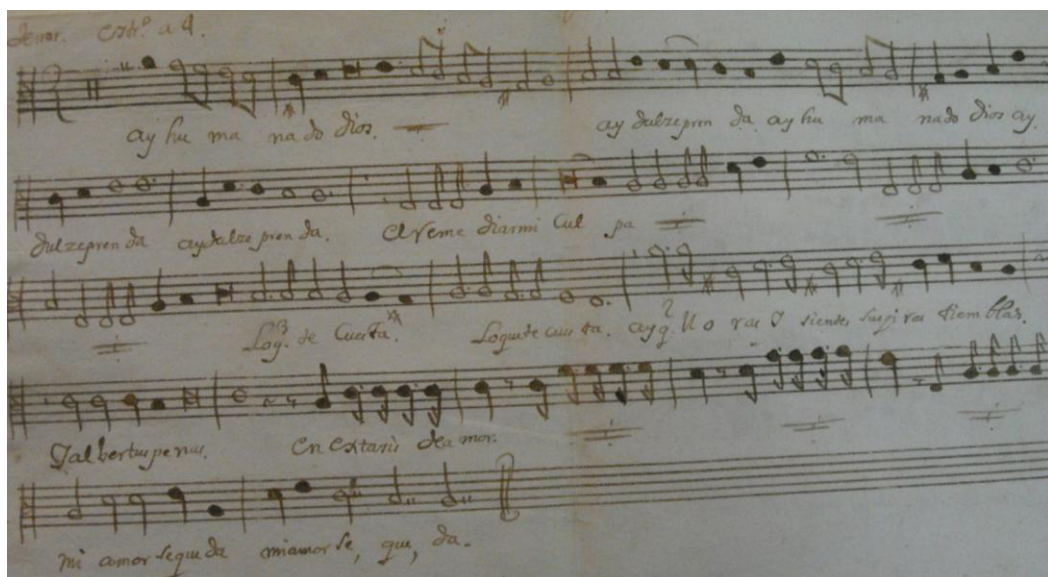 tenor. Estr.º a 4.
ay hu ma nado dios. ay dulze pren da ay hu ma nado dios ay
dulze pren da ay dulze pren da. al verme diarmi Cul pa
Loq. te Cuesta. Loque te cuesta. ay q. llo ras
I al ver tus penas. en extasis de a mor.
mi amor se que da mi amor se, que, da.